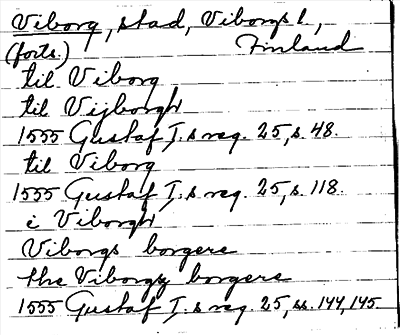 Viborg, stad, Viborgs l.,
(forts.) Finland
til Viborg
til Vijborgh
1555 Gustaf I.s reg. 25, s. 48.
til Viborg
1555 Gustaf I.s reg. 25, s. 118.
i Viborgh
Viborgs borgere
the Viborgz borgere
1555 Gustaf I.s reg. 25, ss. 144, 145